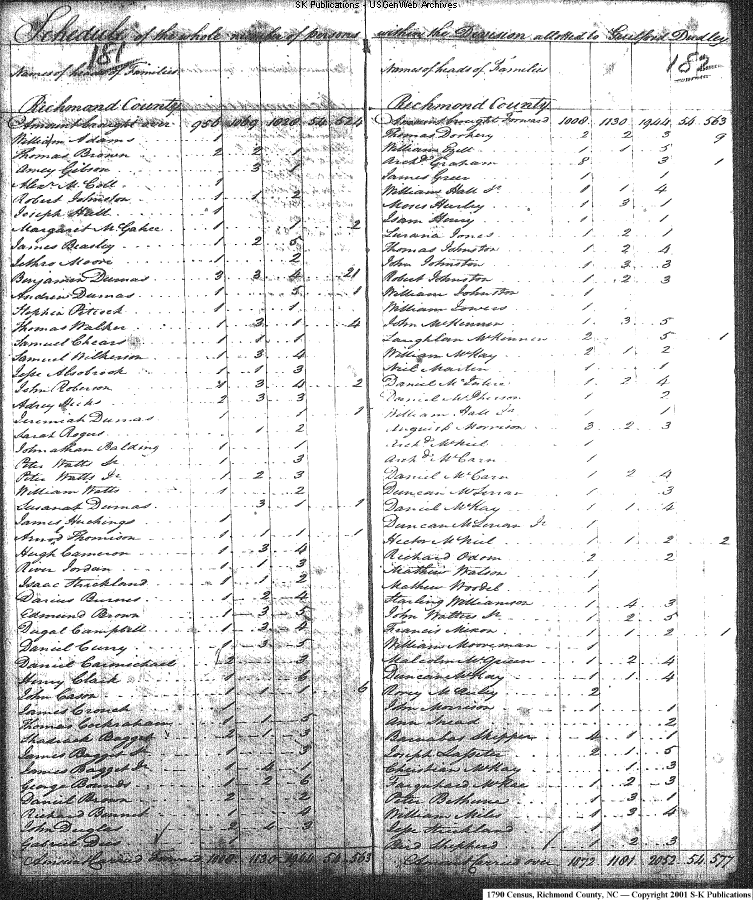 SK Publications - USGenWeb Archives
Schedule of the whole number of persons within the Division allotted to Guilford Dudley
181
Names of heads of Families
Richmond County
Amount brought over 956 1069 1828 54 524
William Adams 1 1
Thomas Brown 2 2 1
Amey Gibson 3 1
Alexr McColl 1
Robert Johnston 1 1 2
Joseph Hall 1
Margaret McGahee 1 2
James Beasley 1 2 5
Jethro Moore 1 2
Benjamin Dumas 3 3 4 21
Andrew Dumas 1 5 1
Stephen Pitcock 1 1
Thomas Walker 1 3 1 4
Samuel Chears 1 1 1
Samuel Wilkerson 1 3 4
Jesse Alsobrook 1 1 3
John Roberson 4 3 4 2
Adrey Hicks 2 3 3
Jeremiah Dumas 1 1 1
Sarah Rogers 1 2
Johnathan Balding 1 1
Peter Watts Sr 1 3
Peter Watts Jr 1 2 3
William Watts 1 2
Susanah Dumas 3 1 1
James Huchings 1
Amos Thomison 1 1 1 1
Hugh Cameron 1 3 4
River Jordan 1 1 3
Isaac Strickland 1 1 2
Darius Burnes 1 2 4
Edmund Brown 1 3 5
Dugal Campbell 1 3 4
Daniel Curry 1 3 3
Daniel Carmichael 2 3
Henry Clark 1 6
John Cason 1 1 1 6
James Crouch 1 1
Thomas Cockraham 1 1 5
Thadrick Bagget 2 1 3
James Bagget Sr 1 3
James Bagget Jr 1 4 1
George Bounds 1 2 6
Daniel Brown 2 2
Richard Bennet 1 4
John Duglas 2 4 3
Gabriel Dees 1
Amount Carried Forward 1008 1130 1944 54 563
182
Names of heads of Families
Richmond County
Amount brought Forward 1008 1130 1944 54 563
Thomas Dockery 2 2 3 9
William Ezell 1 1 5
Archd Graham 8 3 1
James Greer 1 1
William Hall Sr 1 1 4
Moses Hurley 1 3 1
Isam Henry 1 1
Lurana Jones 1 2 1
Thomas Johnston 1 2 4
John Johnston 1 3 3
Robert Johnston 1 2 3
William Johnston 1 1
William Jowers 1
John McKennon 1 3 5
Laughlan McKennen 2 5 1
William McKay 2 1 2
Neil Martin 1 1
Daniel McIntire 1 2 4
Daniel McPherson 1 2
William Hall Jr 1 1
Anguish Morrison 3 2 3
Archd McNeil 1
Archd McCarn 1
Daniel McCarn 1 2 4
Duncan McLeran 1 3
Daniel McKay 1 1 4
Duncan McLeran Jr 1
Hector McNeil 1 1 2 2
Richard Odom 2 2
Mathew Watson 1
Mathew Woodel 1
Starling Williamson 1 4 3
John Watters Sr 1 2 5
Francis Nixon 1 1 2 1
William Mooreman 1
Malcolm McQueen 1 2 4
Duncan McKay 1 1 4
Rorey 2
John Morrison 1 1
Ann Snead 2
Barnabas Skipper 4 1 1
Joseph Laspeter 2 1 5
Christian McKay 1 3
Farquhard McRae 1 2 3
Peter Bethune 1 3 1
William Miles 1 3 4
Jesse Strickland 1
Shepherd 1 2 3
Amount carried over 1072 1181 2052 54 577
1790 Census, Richmond County, NC — Copyright 2001 S-K Publications